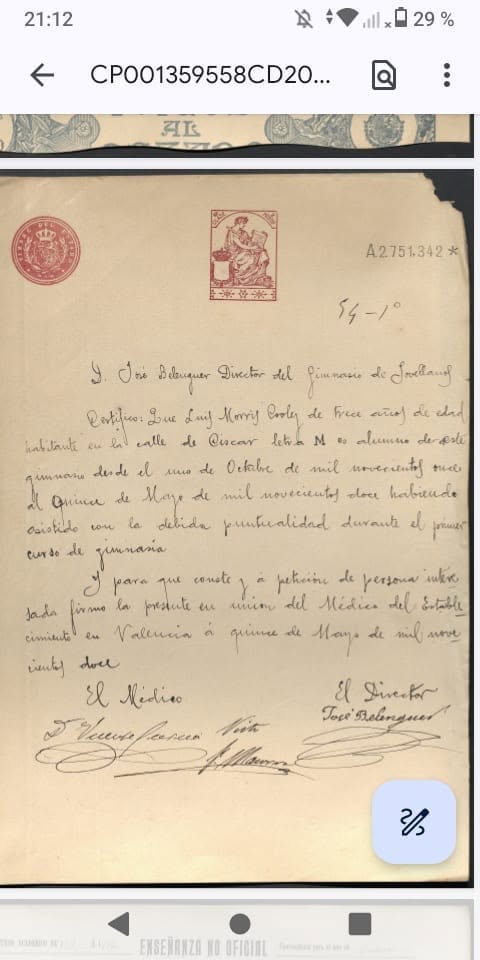 21:12
29 %
CP001359558CD20...
AL
A2751,342*
54-1º
D. José Belenguer Director del Gimnasio de Jovellanos
Certifico: Que Luis Morris Cooley de trece años de edad
habitante en la calle de Ciscar letra M es alumno de este
gimnasio desde el uno de Octubre de mil novecientos once
al Quince de Mayo de mil novecientos doce habiendo
asistido con la debida puntualidad durante el primer
curso de gimnasia
Y para que conste y á petición de persona intere
sada firmo la presente en union del Médico del Estable_
cimiento en Valencia á quince de Mayo de mil nove
cientos doce
El Médico
El Director
José Belenguer
Dr Vicente
ENSEÑANZA NO OFICIAL